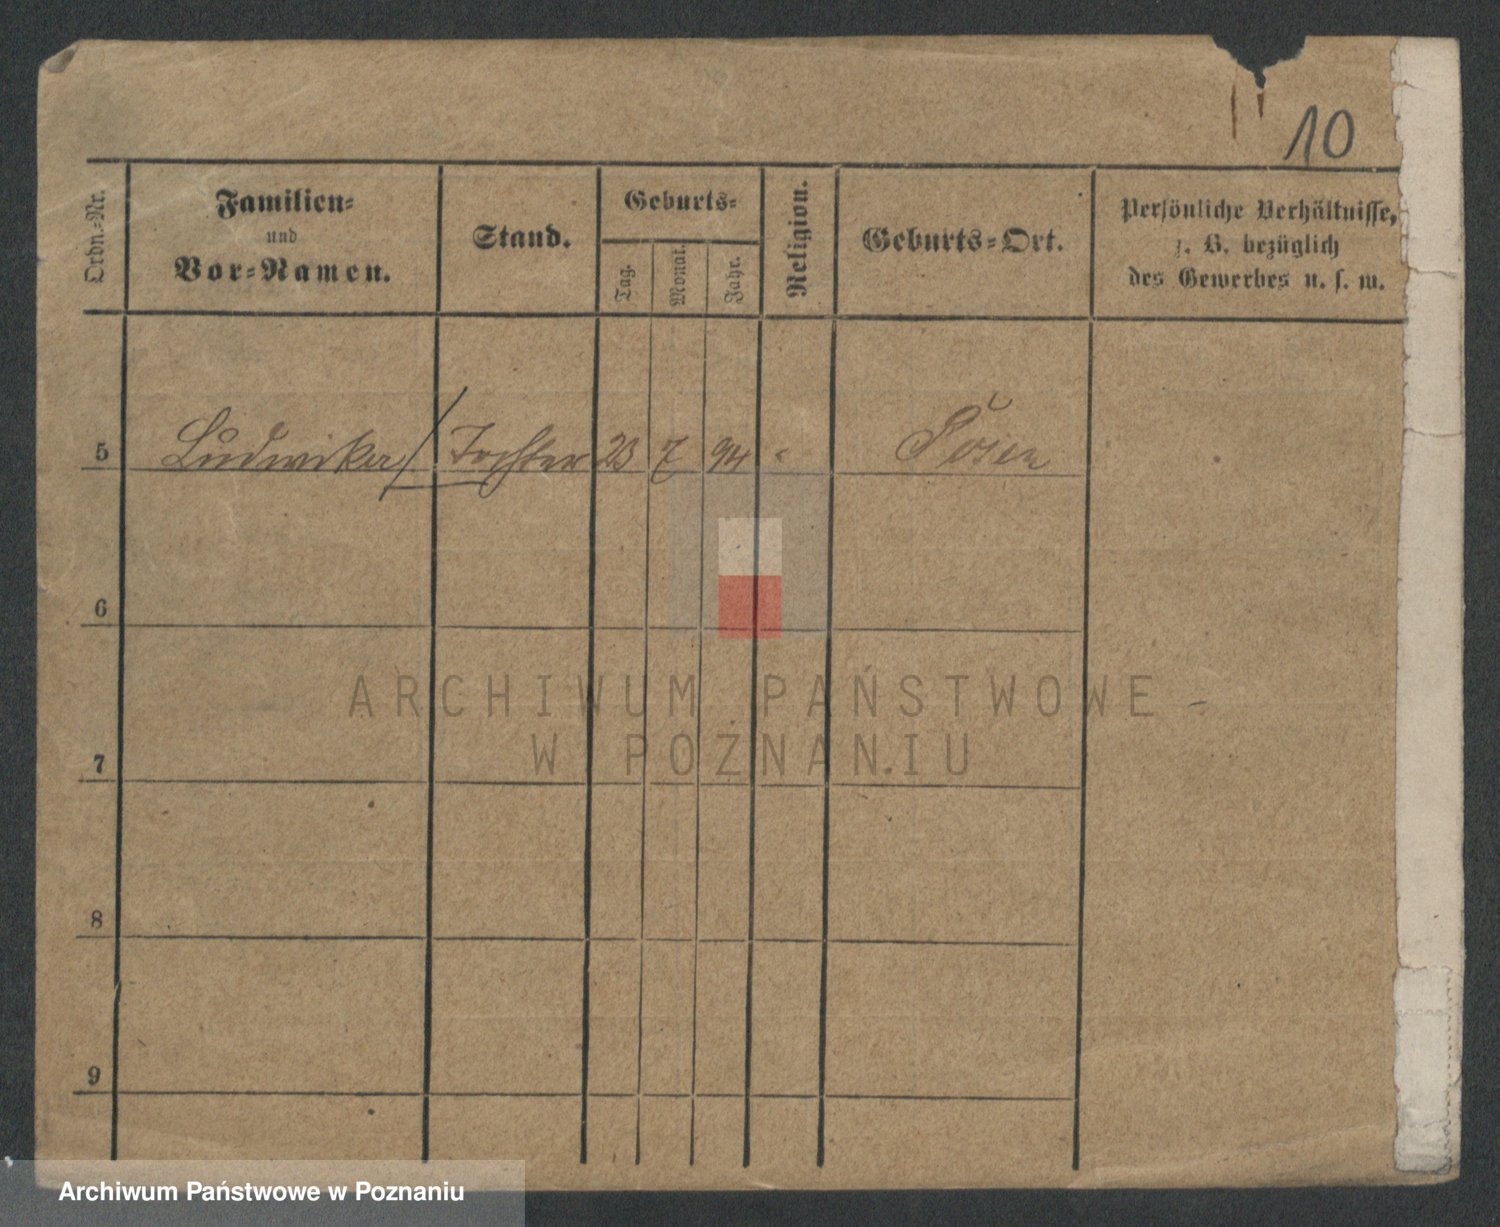 10
Ordn.-Nr.
Familien-
und
Vor-Namen.
Stand.
Geburts-
Tag.
Monat.
Jahr.
Religion.
Geburts-Ort.
Persönliche Verhältnisse,
z. B. bezüglich
des Gewerbes u. s. w.
5 Ludwika Tochter 23 7 94 " Posen
6
ARCHIWUM PAŃSTWOWE
W POZNANIU
7
8
9
Archiwum Państwowe w Poznaniu